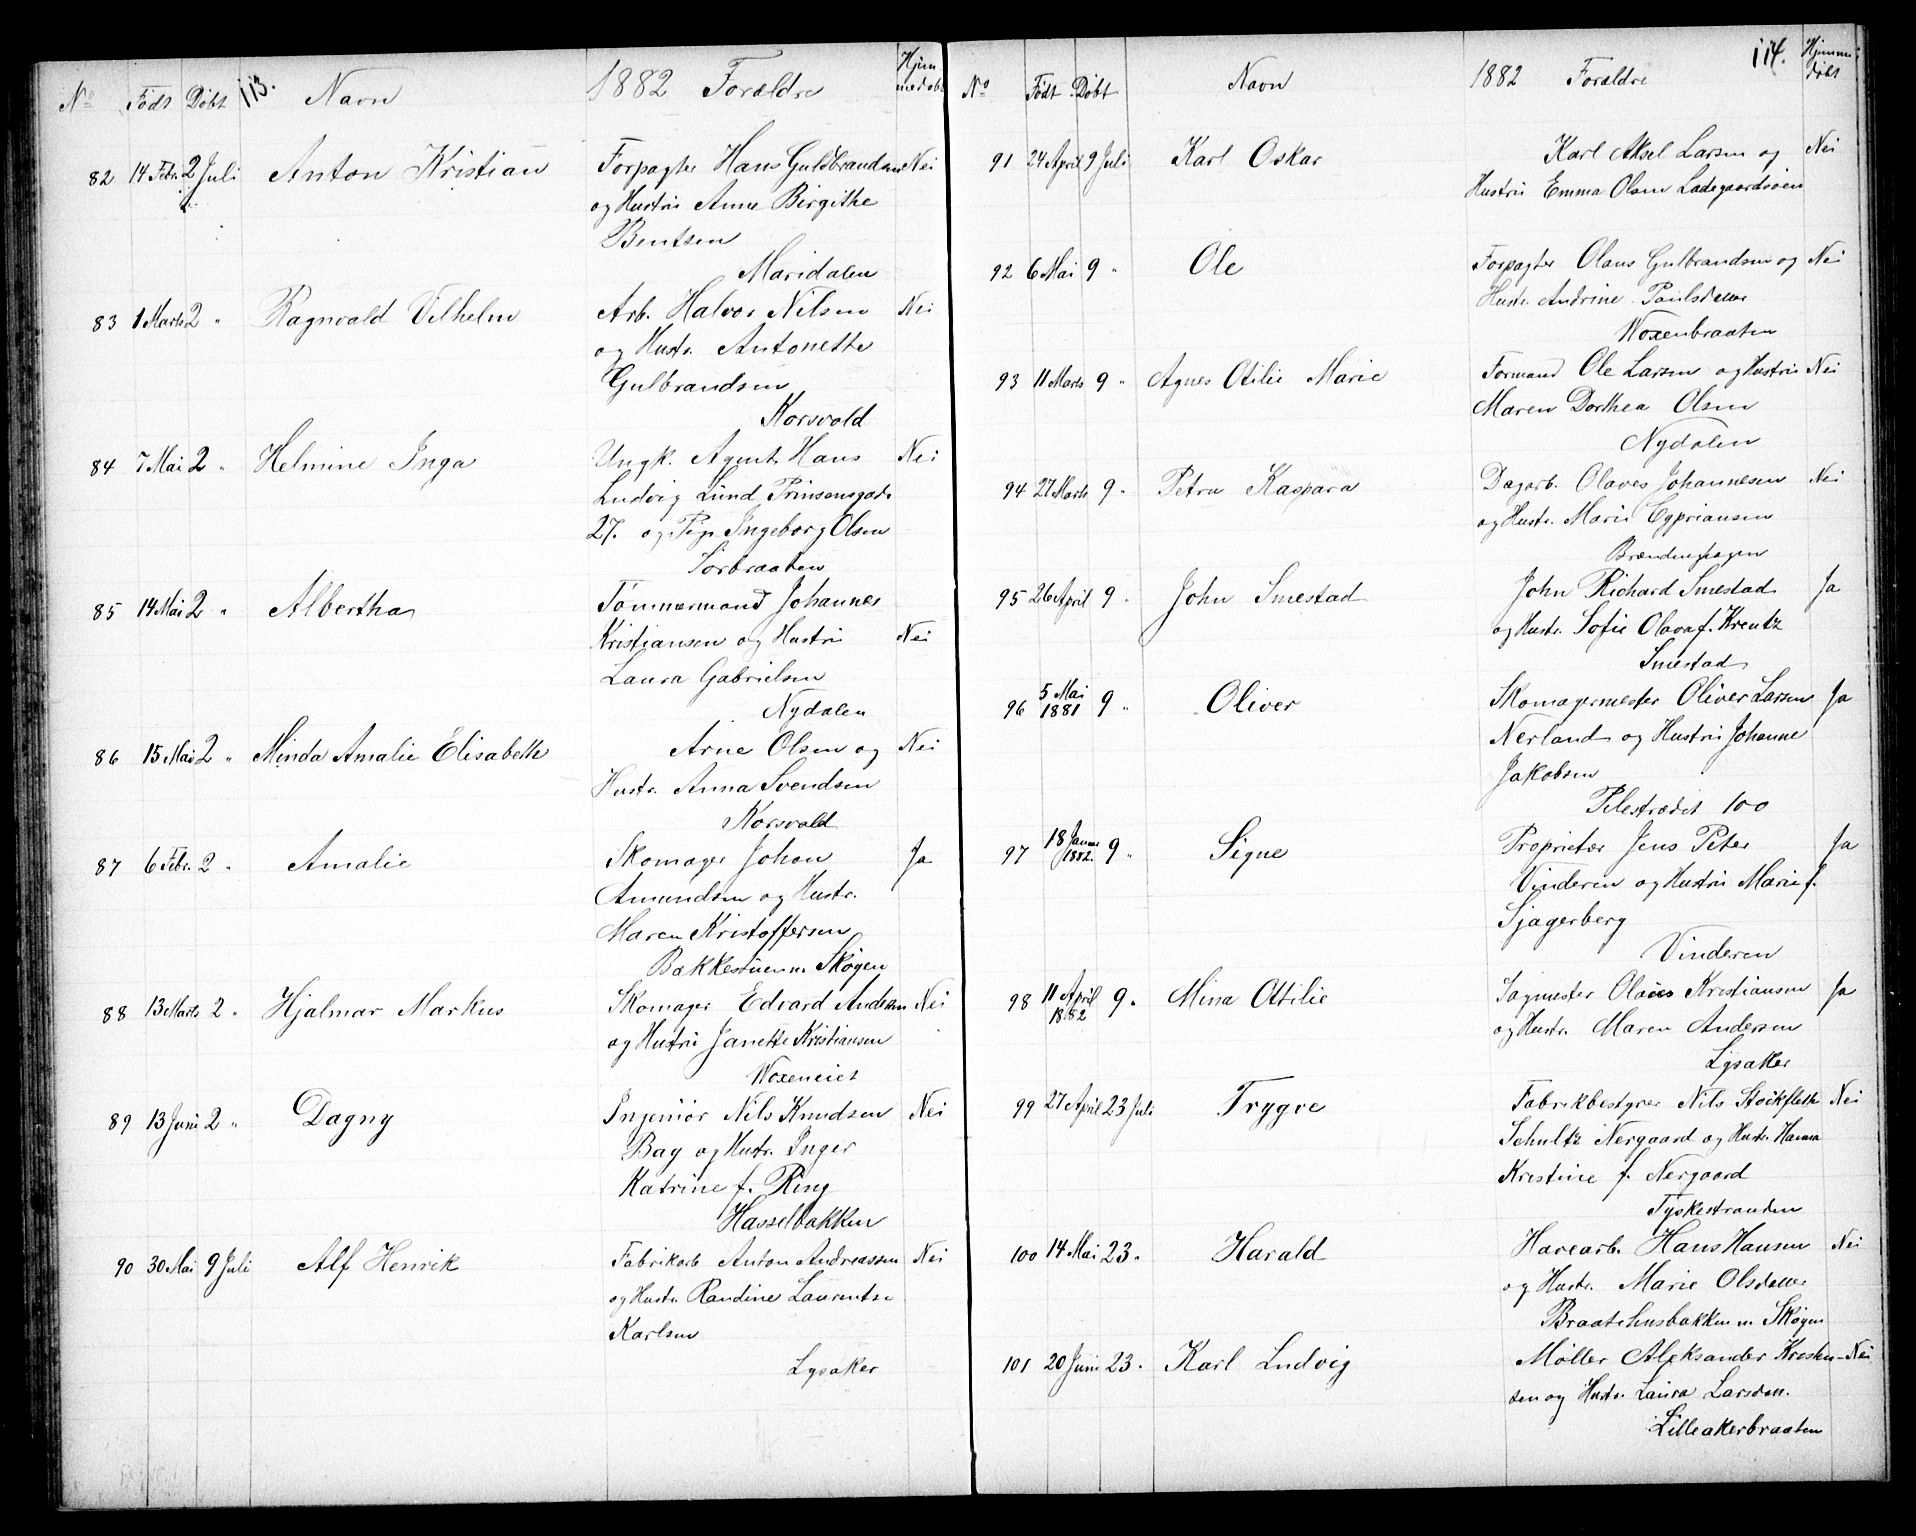 113.
No Født Døbt Navn 1882 Forældre Hjem medøbt
82 14 Febr. 2 Juli Anton Kristian Forpagter Hans Guldbrandsen Nei
og Hustru Anne Birgithe
Bentsen
Maridalen
83 1 Marts 2 " Ragnvald Vilhelm Arb. Halvor Nilsen Nei
og Hustr. Antonette
Gulbrandsen
Korsvold
84 7 Mai 2 " Helmine Inga Ungk. Agent Hans Nei
Ludvig Lund Prinsensgade
27. og Pige Ingeborg Olsen
Sørbraaten
85 14 Mai 2 " Albertha Tømmermand Johannes
Kristiansen og Hustru Nei
Laura Gabrielsen
Nydalen
86 15 Mai 2 " Minda Amalie Elisabeth Arne Olsen og Nei
Hustr. Anna Svendsen
Korsvold
87 6 Febr. 2 " Amalie Skomager Johan Ja
Amundsen og Hustr.
Maren Kristoffersen
Bækkestuen u. Skøyen
88 13 Marts 2 " Hjalmar Markus Skomager Edvard Andersen Nei
og Hustru Janette Kristiansen
Voxeneiet
89 13 Juni 2 " Dagny Ingeniør Nils Knudsen Nei
Bay og Hustr. Inger
Katrine f. Ring
Hasselbakken
90 30 Mai 9 Juli Alf Henrik Fabrikarb Anton Andreassen Nei
og Hustr. Randine Laurentse
Karlsen
Lysaker
114.
No Født Døbt Navn 1882 Forældre Hjemme døbt
91 24 April 9 Juli Karl Oskar Karl Aksel Larsen og Nei
Hustru Emma Olsen Ladegaardsøen
92 6 Mai 9 " Ole Forpagter Olaus Gulbrandsen og Nei
Hustr. Andrine Paulsdatter
Woxenbraaten
93 11 Marts 9 " Agnes Otilie Marie Formand Ole Larsen og Hustru Nei
Maren Dorthea Olsen
Nydalen
94 27 Marts 9 " Petra Kaspara Dagarb. Olaves Johannesen Nei
og Hustr. Marie Cyprianssen
Brændenhagen
95 26 April 9 " John Smestad John Richard Smestad Ja
og Hustr. Sofie Olava f. Kreutz
Smestad
96 5 Mai 1881 9 " Oliver Skomagermester Oliver Larsen Ja
Nerland og Hustru Johanne
Jakobsen
Pilestrædet 100
97 18 Januar 1882. 9 " Signe Proprietær Jens Peter Ja
Vinderen og Hustru Marie f.
Sjagerberg
Vinderen
98 11 April 1882 9 " Mina Ottilie Sagmester Olaus Kristiansen Ja
og Hustr. Maren Andersen
Lysaker
99 27 April 23 Juli Trygve Fabrikbestyrer Nils Stockfleth Nei
Schultz Nergaard og Hustr. Hanna
Kristine f. Nergaard
Tyskestranden
100 14 Mai 23 " Harald Havearb. Hans Hansen Nei
og Hustr. Marie Olsdatter
Braatehusbakken u. Skøyen
101 20 Juni 23 " Karl Ludvig Møller Aleksander Kristen- Nei
sen og Hustr. Laura Larsen.
Lilleakerbraaten